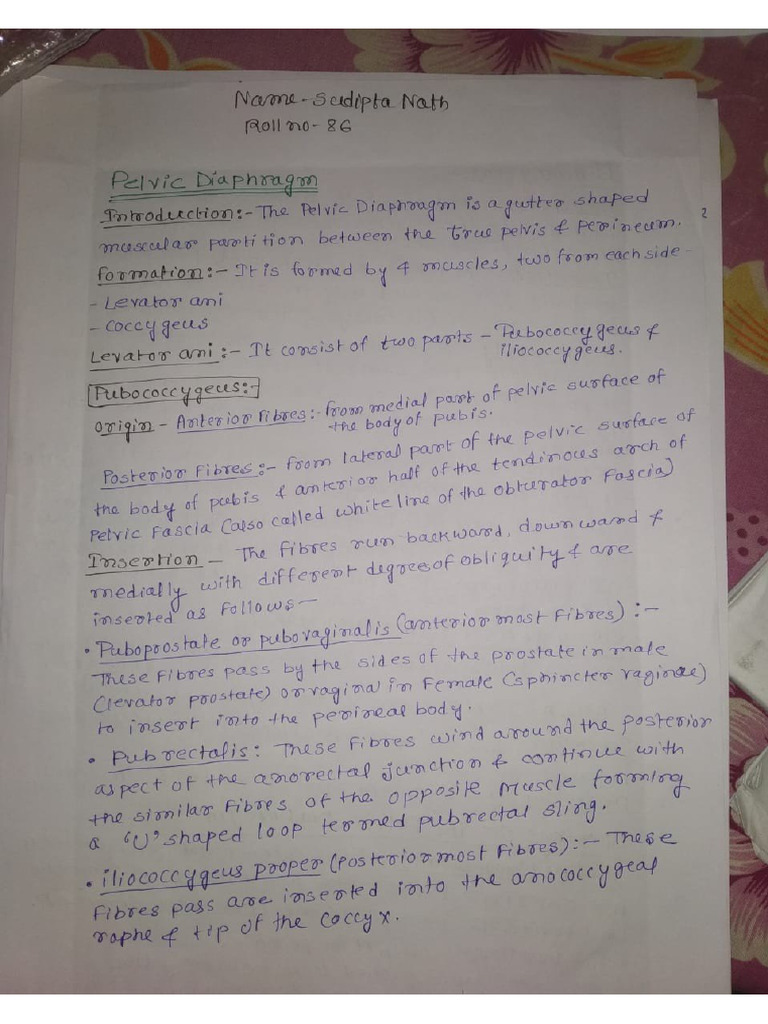 Name - Sudipta Nath
Roll no - 86
Pelvic Diaphragm
Introduction:- The Pelvic Diaphragm is a gutter shaped
muscular partition between the true pelvis & perineum.
2
Formation:- It is formed by 4 muscles, two from each side -
- Levator ani
- Coccygeus
Levator ani:- It consist of two parts - Pubococcygeus &
iliococcygeus.
Pubococcygeus:-
Origin - Anterior Fibres:- from medial part of pelvic surface of
the body of pubis.
Posterior Fibres:- from lateral part of the pelvic surface of
the body of pubis & anterior half of the tendinous arch of
Pelvic Fascia (also called white line of the obturator Fascia)
Insertion - The fibres run backward, downward &
medially with different degrees of obliquity & are
inserted as follows -
• Puboprostate or pubovaginalis (anterior most Fibres) :-
These Fibres pass by the sides of the prostate in male
(levator prostate) or vagina in Female (sphincter vaginae)
to insert into the perineal body.
• Pubrectalis: These Fibres wind around the posterior
aspect of the anorectal junction & continue with
the similar Fibres of the opposite muscle forming
a 'U' shaped loop termed pubrectal sling.
• iliococcygeus proper (Posterior most Fibres):- These
Fibres pass are inserted into the anococcygeal
raphe & tip of the coccyx.